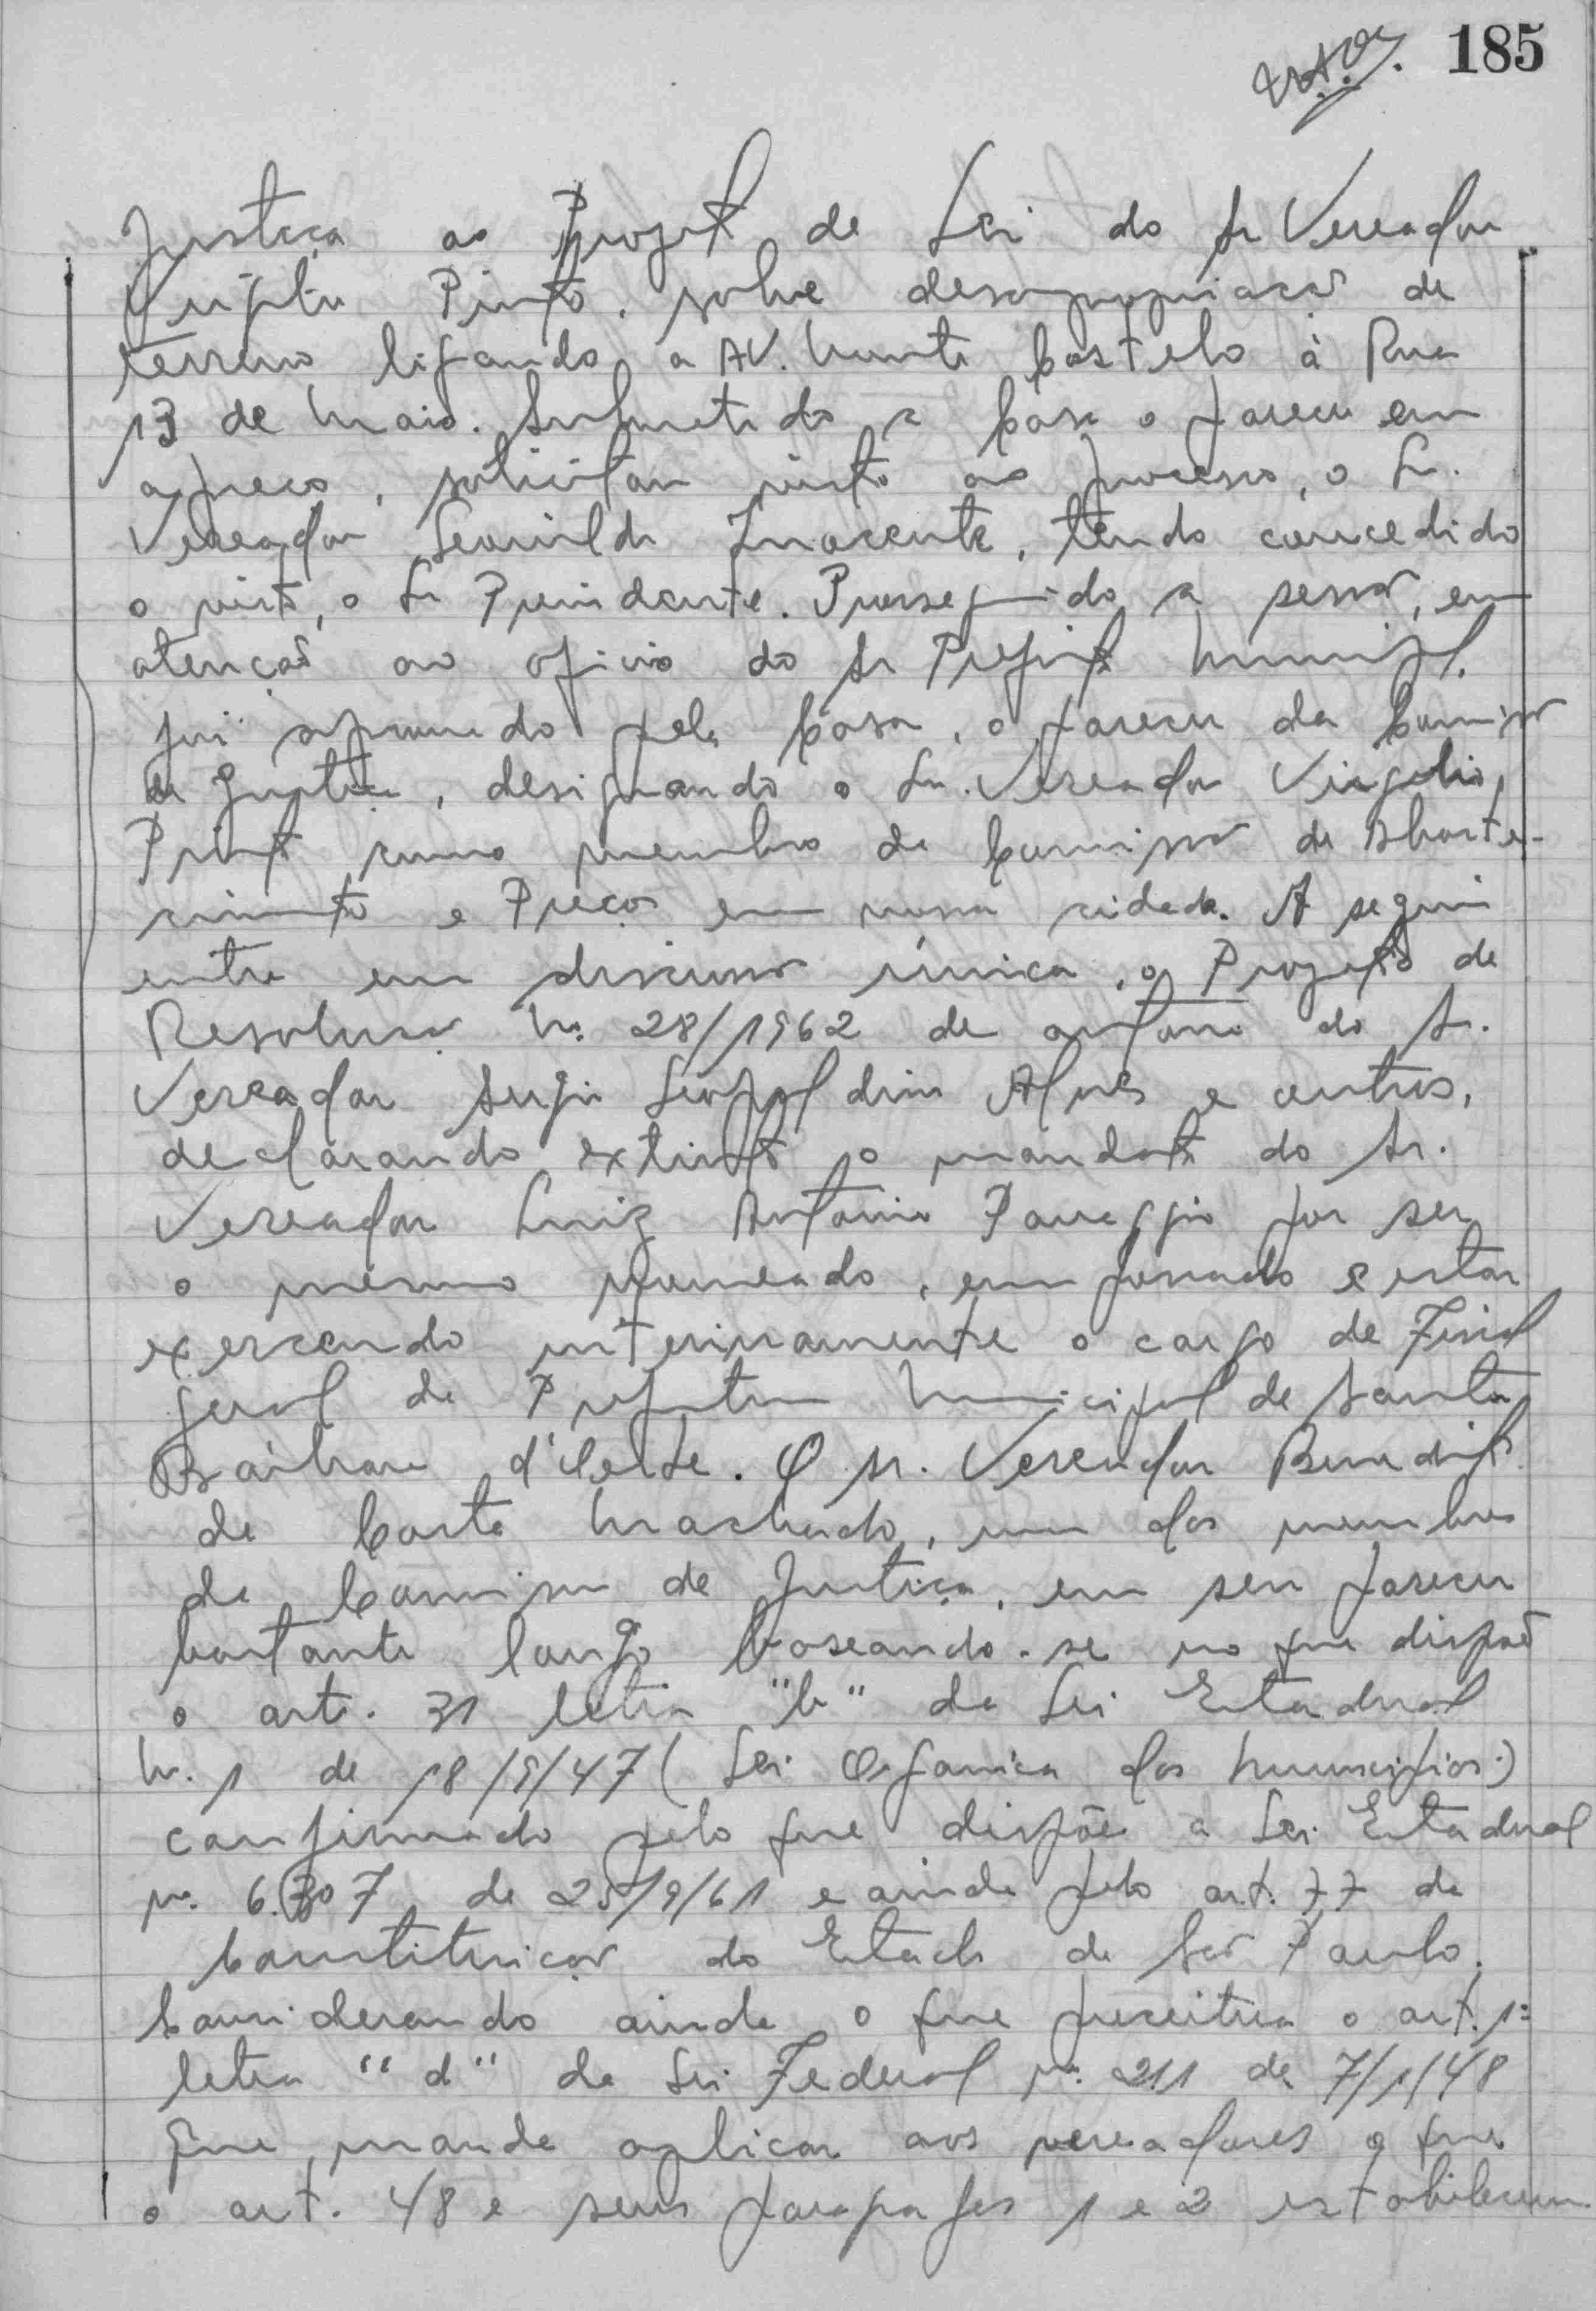 185
Justiça ao Projeto de Lei do Sr Vereador
Virgilio Pinto, sobre desapropriação de
terreno ligando a AV. Monte Castelo à Rua
13 de Maio. Submetido a Casa o parecer em
apreço, solicitou visto ao processo, o Sr.
Vereador Leonildo Inocente, tendo concedido
o visto, o Sr Presidente. Prosseguindo a sessão, em
atenção ao oficio do Sr Prefeito Municipal,
foi aprovado pela Casa, o parecer da Comissão
de Justiça, designando o Sr. Vereador Virgilio
Pinto como membro da Comissão de Abaste-
cimento e Preços em nossa cidade. A seguir
entra em discussão única, o Projeto de
Resolução Nº 28/1962 de autoria do Sr.
Vereador Sergio Leopoldino Alves e outros,
declarando extinto o mandato do Sr.
Vereador Luiz Antonio Panaggio por ser
o mesmo nomeado, empossado e estar
exercendo interinamente o cargo de Fiscal
geral da Prefeitura Municipal de Santa
Bárbara d'Oeste. O sr. Vereador Benedito
da Costa Machado, um dos membros
da Comissão de Justiça, em seu parecer
bastante longo baseando-se no que dispõe
o art. 31 letra "b" da Lei Estadual
Nº. 1 de 18/9/47 (Lei Organica dos Municipios)
confirmado pelo que dispõe a Lei Estadual
nº. 6.307 de 25/9/61 e ainda pelo art. 77 da
Constituição do Estado de São Paulo.
Considerando ainda o que preceitua o art. 1º
letra "d" da Lei Federal nº. 211 de 7/1/48
que manda aplicar aos vereadores o que
o art. 48 e seus paragrafos 1 e 2 estabelecem